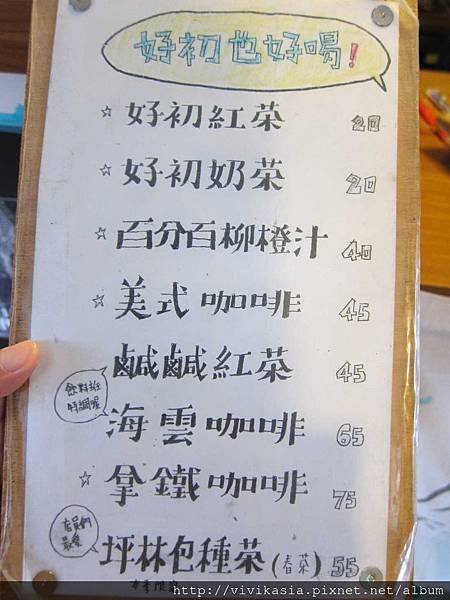 好初也好喝!
☆ 好初紅茶 20
☆ 好初奶茶 20
☆ 百分百柳橙汁 40
☆ 美式咖啡 45
鹹鹹紅茶 45
飲料班
特調喔
海雲咖啡 65
☆ 拿鐵咖啡 75
店員們
最愛
坪林包種茶(春茶) 55
http://vivikasia.pixnet.net/album